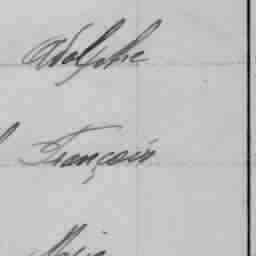 Adolphe
François
Marie